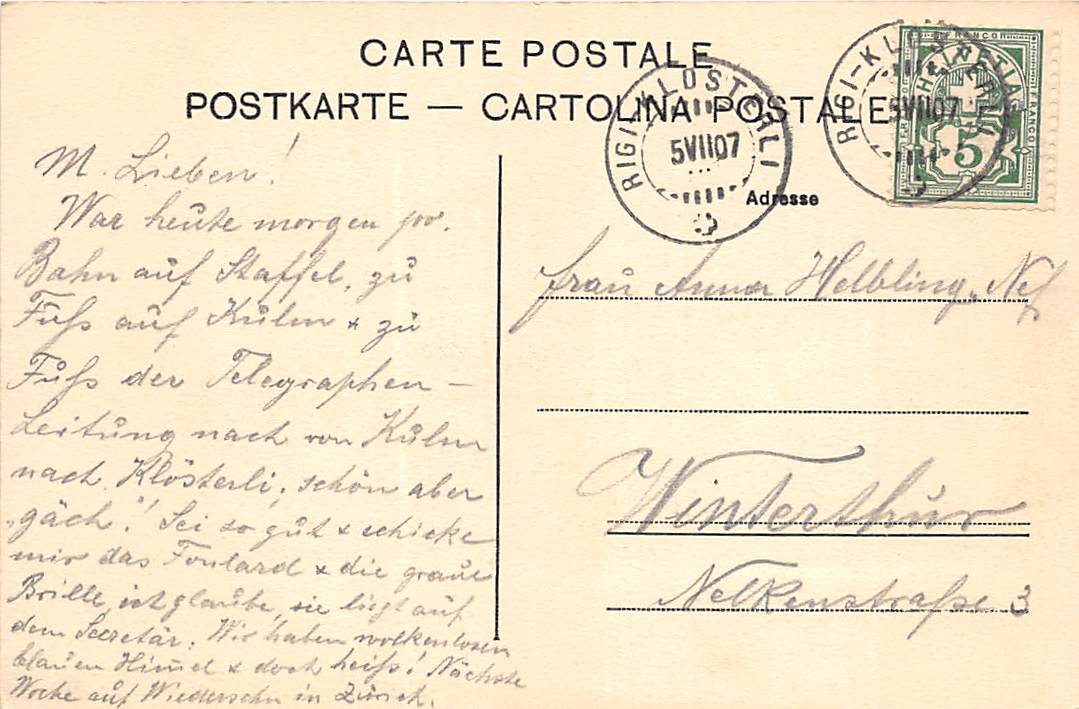 CARTE POSTALE
POSTKARTE — CARTOLINA POSTALE
RIGI-KLÖSTERLI
5 VII 07
RIGI-KLÖSTERLI
5 VII 07
FRANCO
HELVETIA
FRANCO
5
Adresse
M. Lieben!
War heute morgen per
Bahn auf Staffel, zu
Fuß auf Kulm & zu
Fuß der Telegraphen-
Leitung nach von Kulm
nach Klösterli, schön aber
„gäch“! Sei so gut & schicke
mir das Foulard & die graue
Brille, ich glaube, sie liegt auf
dem Secretär. Wir haben wolkenlosen
blauen Himel & doch heiß! Nächste
Woche auf Wiedersehn in Zürich.
Frau Anna Helbling-Nef
Winterthur
Nelkenstraße 3